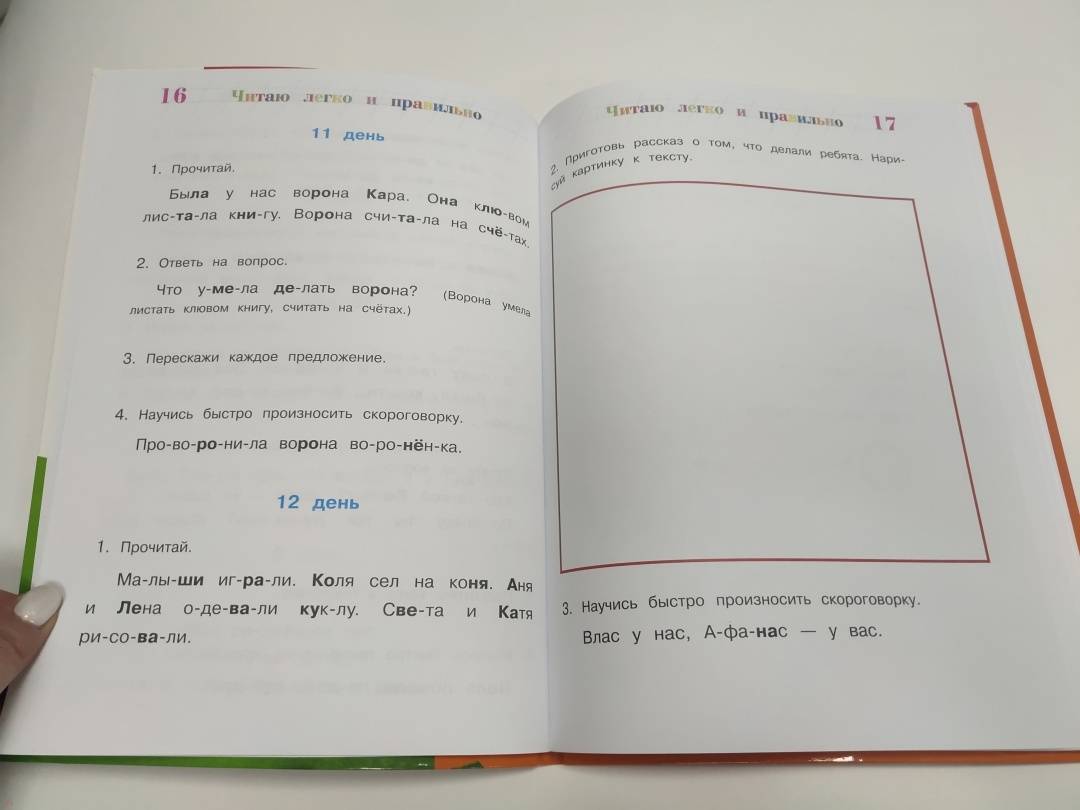 16 Читаю легко и правильно
11 день
1. Прочитай.
Была у нас ворона Кара. Она клю-вом
лис-та-ла кни-гу. Ворона счи-та-ла на счё-тах.
2. Ответь на вопрос.
Что у-ме-ла де-лать ворона? (Ворона умела
листать клювом книгу, считать на счётах.)
3. Перескажи каждое предложение.
4. Научись быстро произносить скороговорку.
Про-во-ро-ни-ла ворона во-ро-нён-ка.
12 день
1. Прочитай.
Ма-лы-ши иг-ра-ли. Коля сел на коня. Аня
и Лена о-де-ва-ли кук-лу. Све-та и Катя
ри-со-ва-ли.
Читаю легко и правильно 17
2. Приготовь рассказ о том, что делали ребята. Нари-
суй картинку к тексту.
3. Научись быстро произносить скороговорку.
Влас у нас, А-фа-нас — у вас.